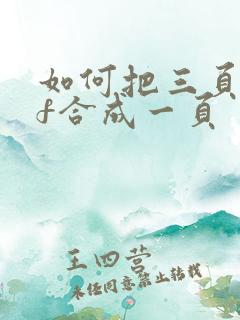 如何把三页
f合成一页
王四营
未经同意禁止转载